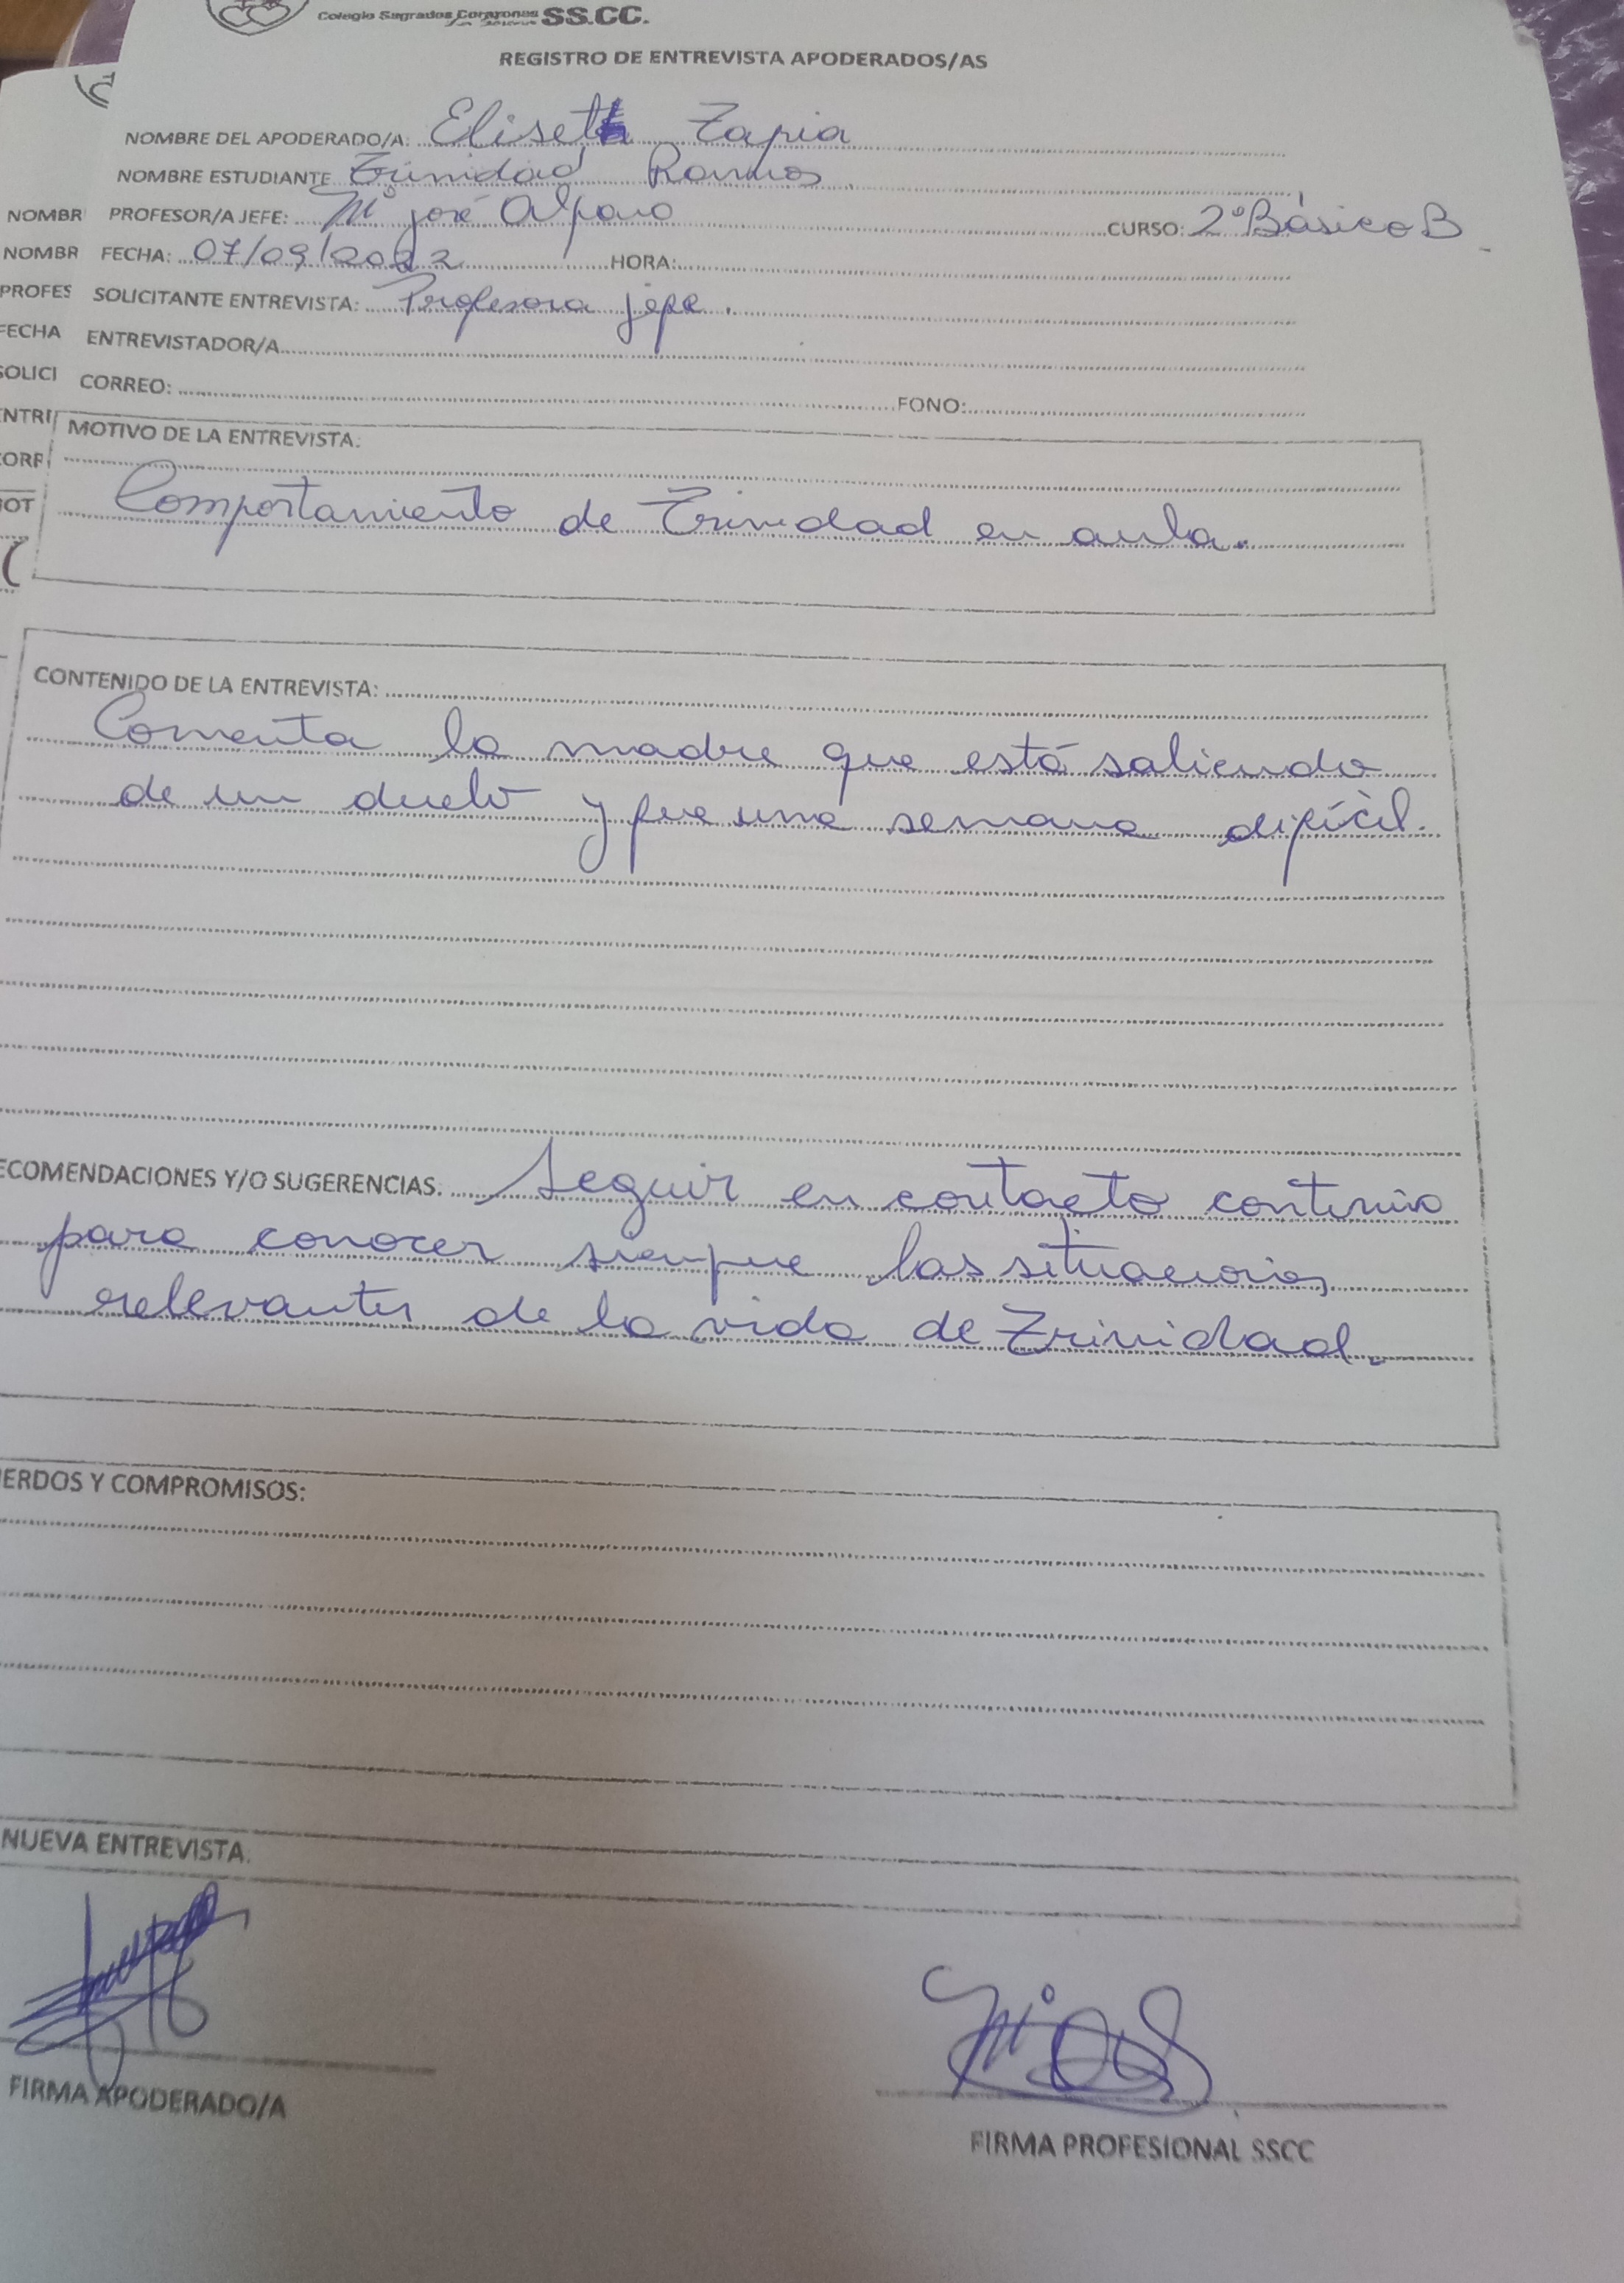 Colegio Sagrados Corazones SS.CC.
REGISTRO DE ENTREVISTA APODERADOS/AS
NOMBRE DEL APODERADO/A: Eliseth Zapia
NOMBRE ESTUDIANTE Trinidad Ramos
NOMBR PROFESOR/A JEFE: Mº José Alfaro CURSO: 2º Básico B
NOMBR FECHA: 07/09/2022 HORA:
PROFES SOLICITANTE ENTREVISTA: Profesora jefe.
FECHA ENTREVISTADOR/A
SOLICI CORREO: FONO:
ENTRI MOTIVO DE LA ENTREVISTA.
CORR
MOT Comportamiento de Trinidad en aula.
CONTENIDO DE LA ENTREVISTA:
Comenta la madre que está saliendo
de un duelo y fue una semana difícil.
ECOMENDACIONES Y/O SUGERENCIAS. Seguir en contacto continuo
para conocer siempre las situaciones
relevantes de la vida de Trinidad.
ERDOS Y COMPROMISOS:
NUEVA ENTREVISTA.
FIRMA APODERADO/A
FIRMA PROFESIONAL SSCC